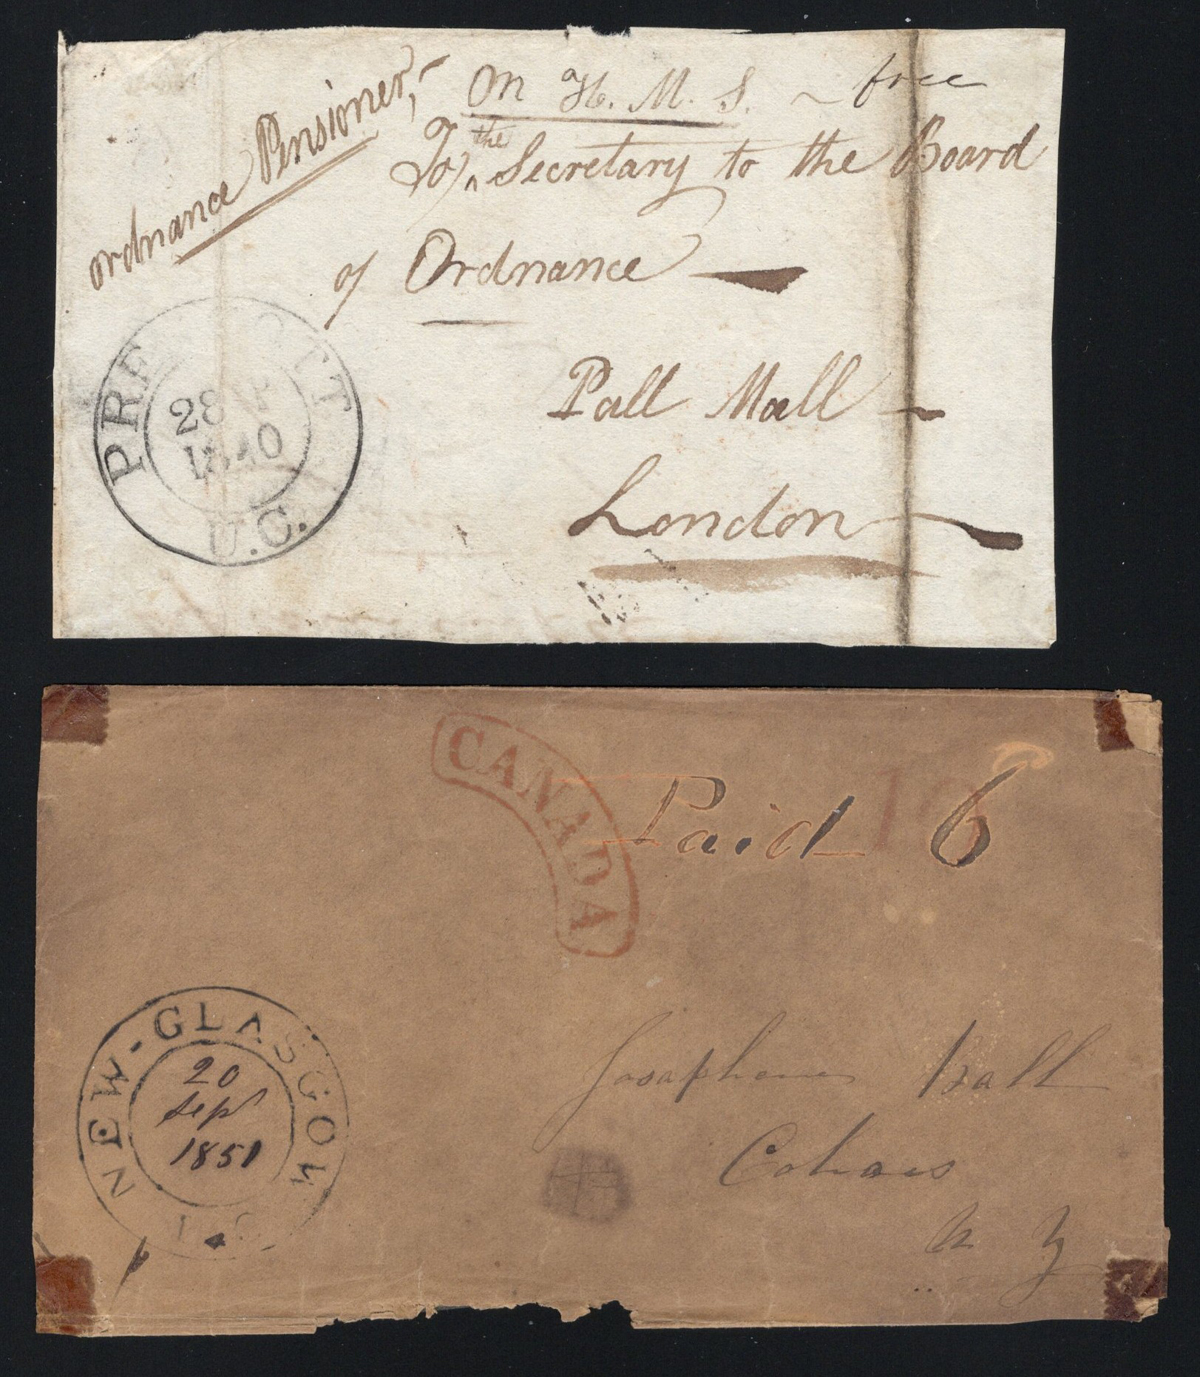 Ordnance Pensioner,
On H. M. S. ~ free
To, the Secretary to the Board
of Ordnance
Pall Mall
London
PRESCOTT
28 AP
1840
U.C.
CANADA
Paid 6
NEW-GLASGOW
20
Sept
1851
Josaphene Ball
Cohoes
N Y